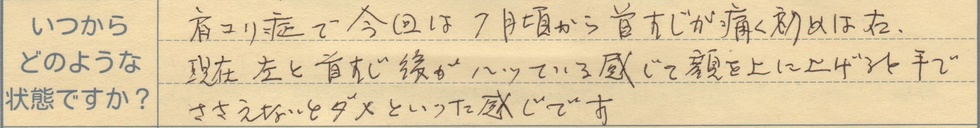 いつから
どのような
状態ですか？
肩コリ症で今回は7月頃から首すじが痛く初めは右、
現在左と首すじ後がハッている感じで顔を上に上げると手で
ささえないとダメといった感じです